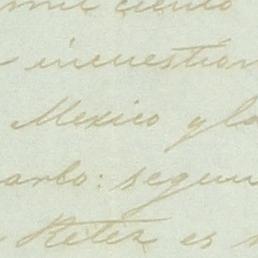 mil ciento
incuestion
Mexico y la
arlo: segun
Retez es